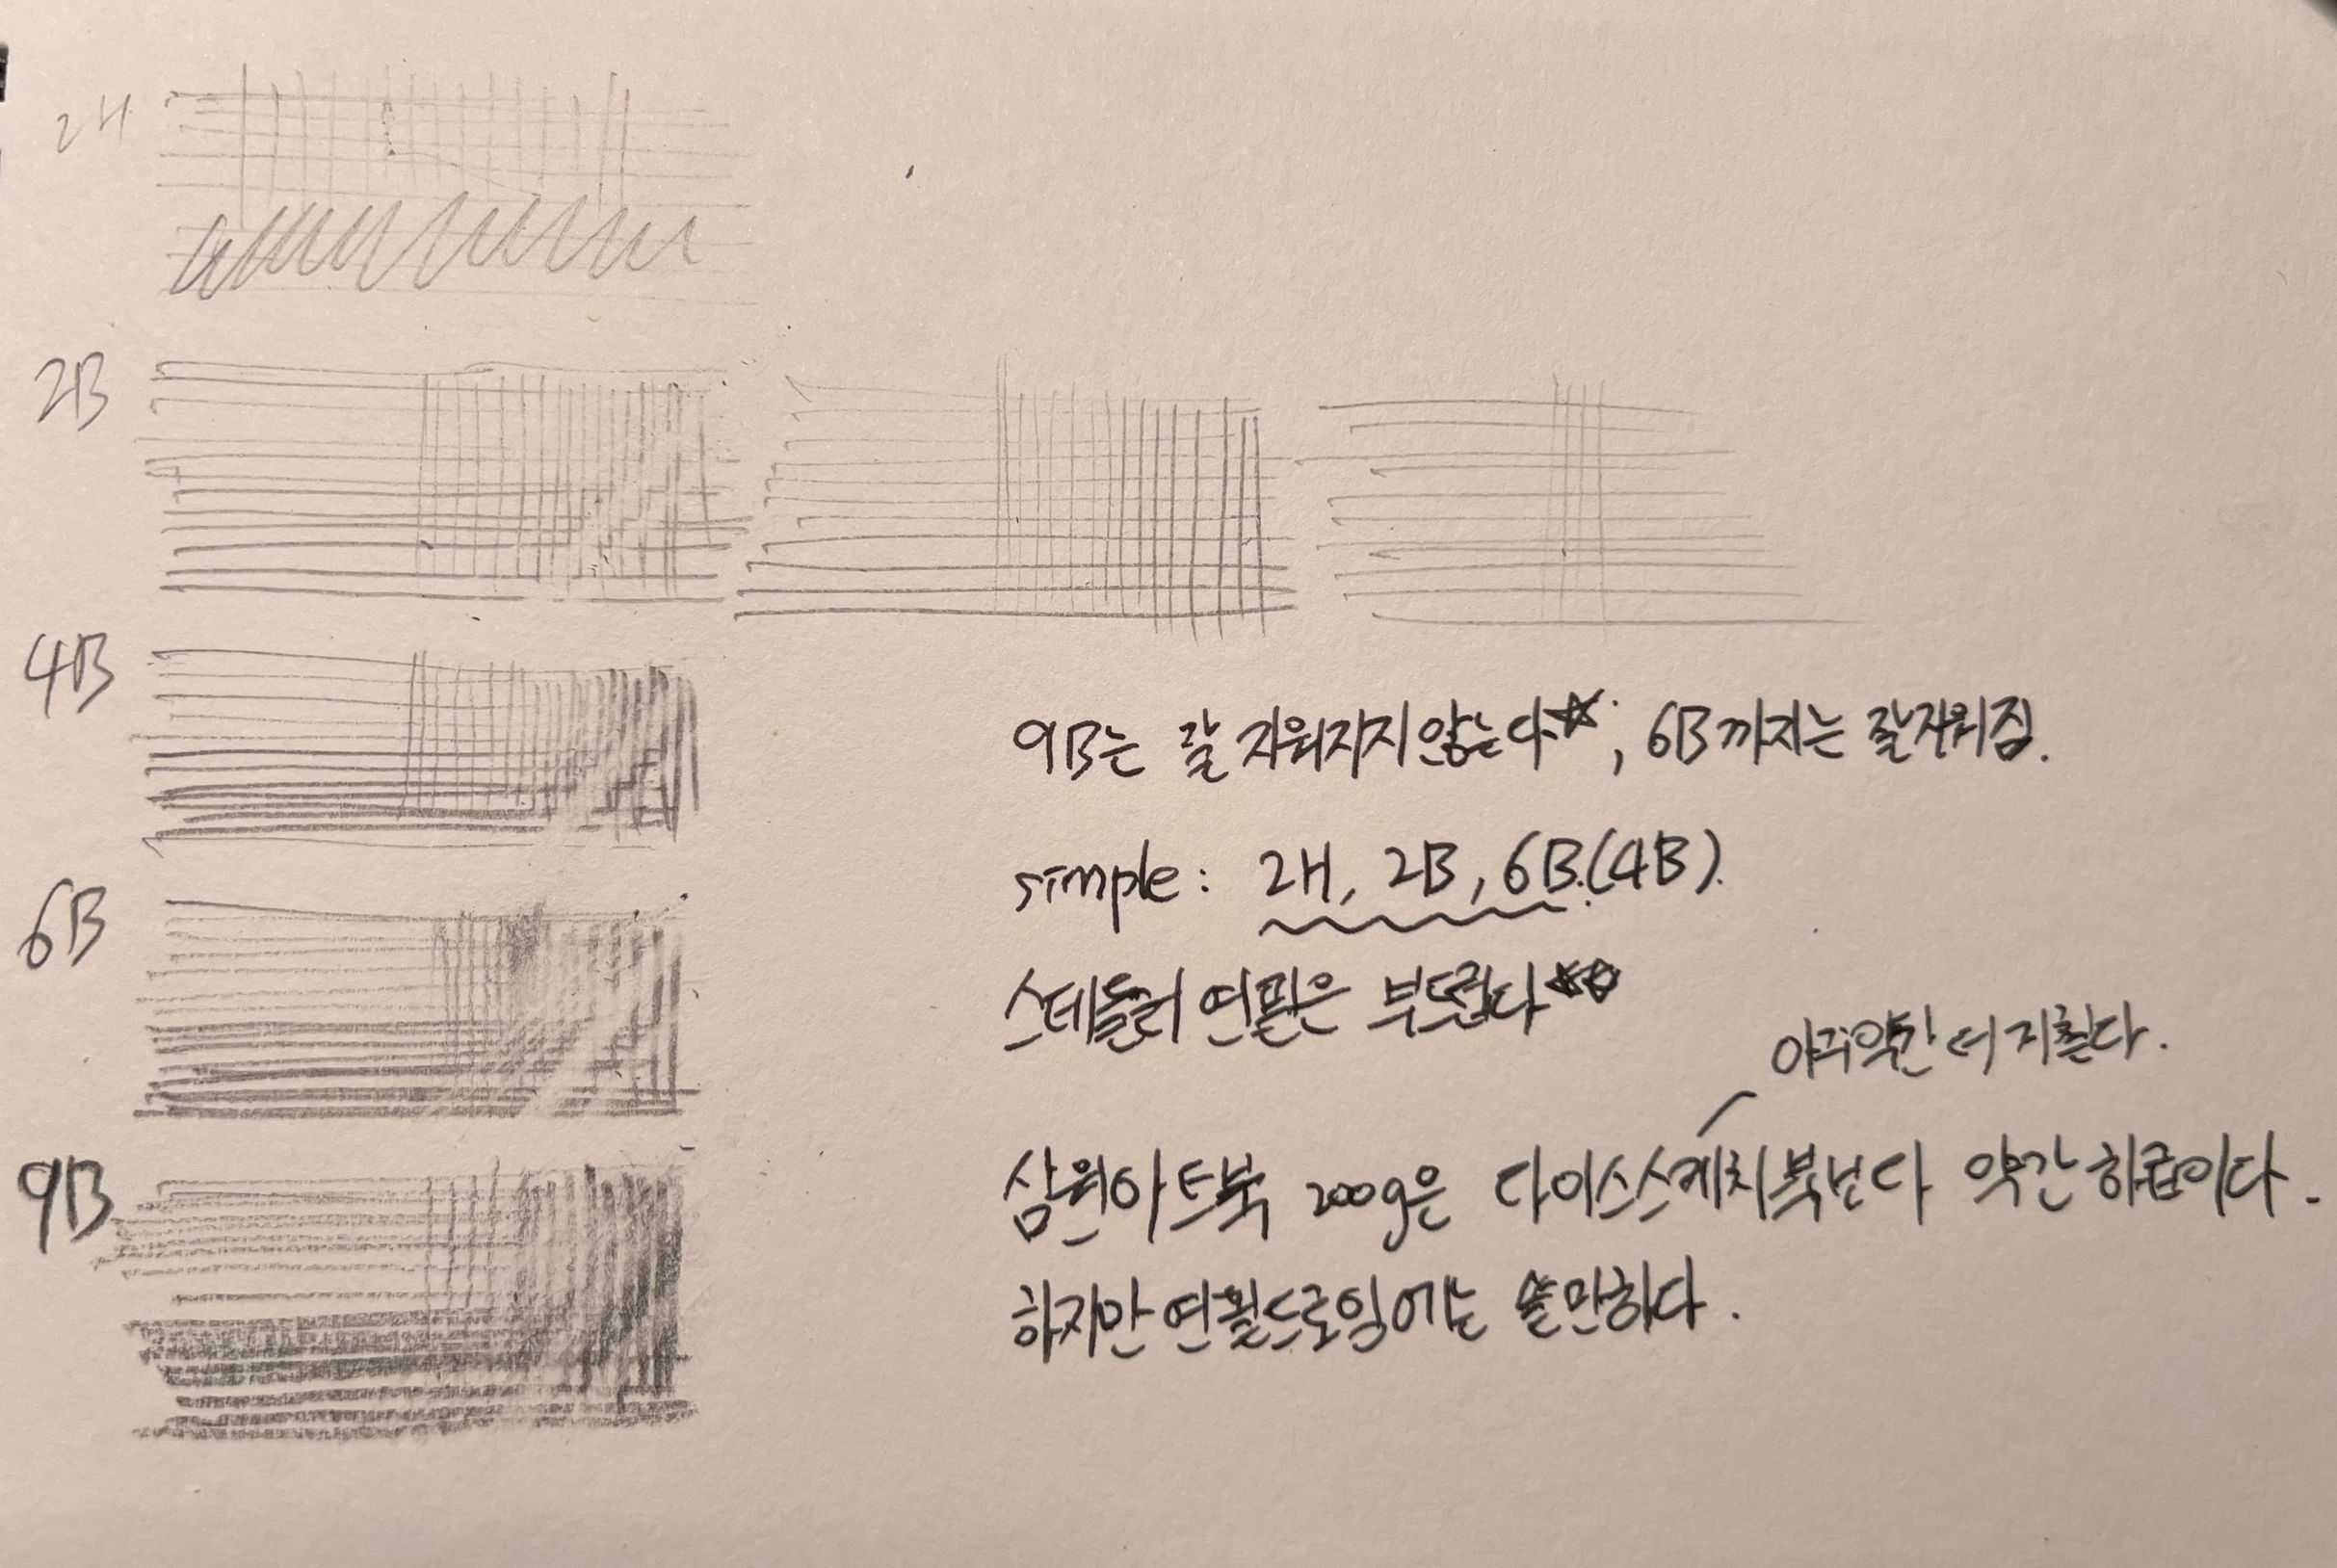 2H
2B
4B
6B
9B
9B는 잘 지워지지 않는다☆, 6B까지는 잘지워짐.
simple: 2H, 2B, 6B.(4B).
스테들러 연필은 부드럽다☆☆
아주약간 더 거칠다.
삼원아트북 200g은 다이소스케치북보다 약간 하급이다.
하지만 연필드로잉에는 쓸만하다.